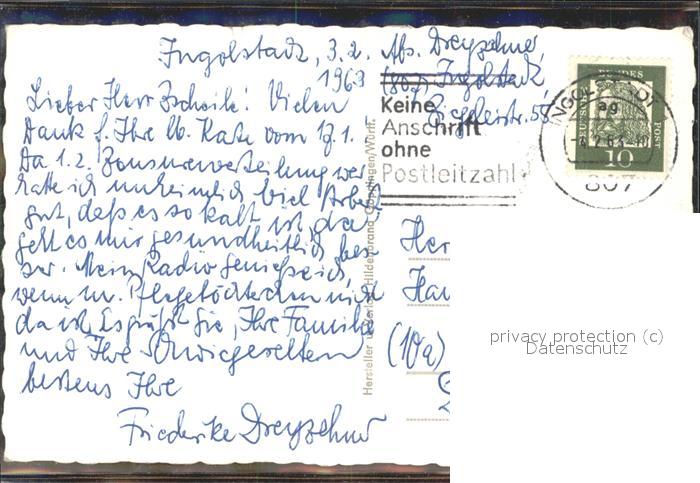 Ingolstadt, 3.2.
1963
Lieber Herr Zscheile! Vielen
Dank f. Ihre lb. Karte vom 17.1.
Da 1.2. Zensurenverteilung war
hatte ich unheimlich viel Arbeit
gut, daß es so kalt ist, da
geht es mir gesundheitlich bes-
ser. Mein Radio genieße ich,
wenn m. Pflegetöchterchen nicht
da ist. Es grüßt Sie, Ihre Familie
und Ihre Schwiegereltern
bestens Ihre
Friederike Dreyzehner
Abs. Dreyzehner,
(807) Ingolstadt,
Keine
Anschrift
ohne
Postleitzahl
INGOLSTADT
807
DEUTSCHE BUNDESPOST
10
Hersteller u. Verlag Hildenbrand, Göppingen/Württ.
Her
Hau
(10a)
privacy protection (c)
Datenschutz